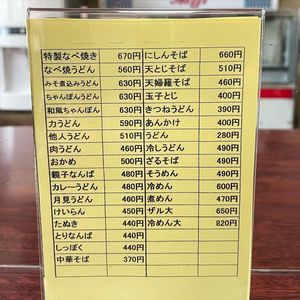 特製なべ焼き 670円 にしんそば 660円
なべ焼うどん 560円 天とじそば 510円
みそ煮込みうどん 630円 天婦羅そば 460円
ちゃんぽんうどん 630円 玉子とじ 410円
和風ちゃんぽん 630円 きつねうどん 390円
力うどん 590円 あんかけ 400円
他人うどん 510円 うどん 280円
肉うどん 460円 冷しうどん 490円
おかめ 500円 ざるそば 490円
親子なんば 480円 そうめん 490円
カレーうどん 480円 冷めん 600円
月見うどん 460円 煮めん 470円
けいらん 450円 ザル大 650円
たぬき 440円 冷めん大 820円
とりなんば 440円
しっぽく 440円
中華そば 370円